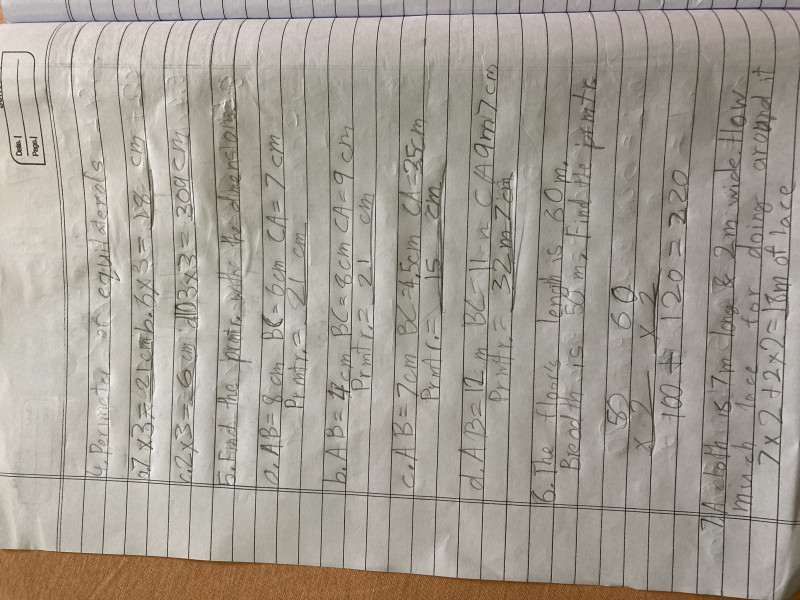 Date
Page
4. Perimeter of equilaterals
a. 7x3=21cm b. 6x3=18 cm
c. 2x3=6cm d. 103x3=309cm
5. Find the prmtr. with the dimensions
a. AB=8cm BC=6cm CA=7cm
Prmtr.=21 cm
b. AB=4cm BC=8cm CA=9 cm
Prmtr.=21 cm
c. AB=7cm BC=4.5cm CA=3.5cm
Prmtr.=15 cm
d. AB=12 m BC=11 m CA 9m7cm
Prmtr=32m7cm
6. The floor's length is 60 m.
Breadth is 50 m. Find the prmtr.
50 60
x2 x2
100+120=220
7. A cloth is 7m long & 2m wide How
much lace for doing around it
7x2+2x2=18m of lace